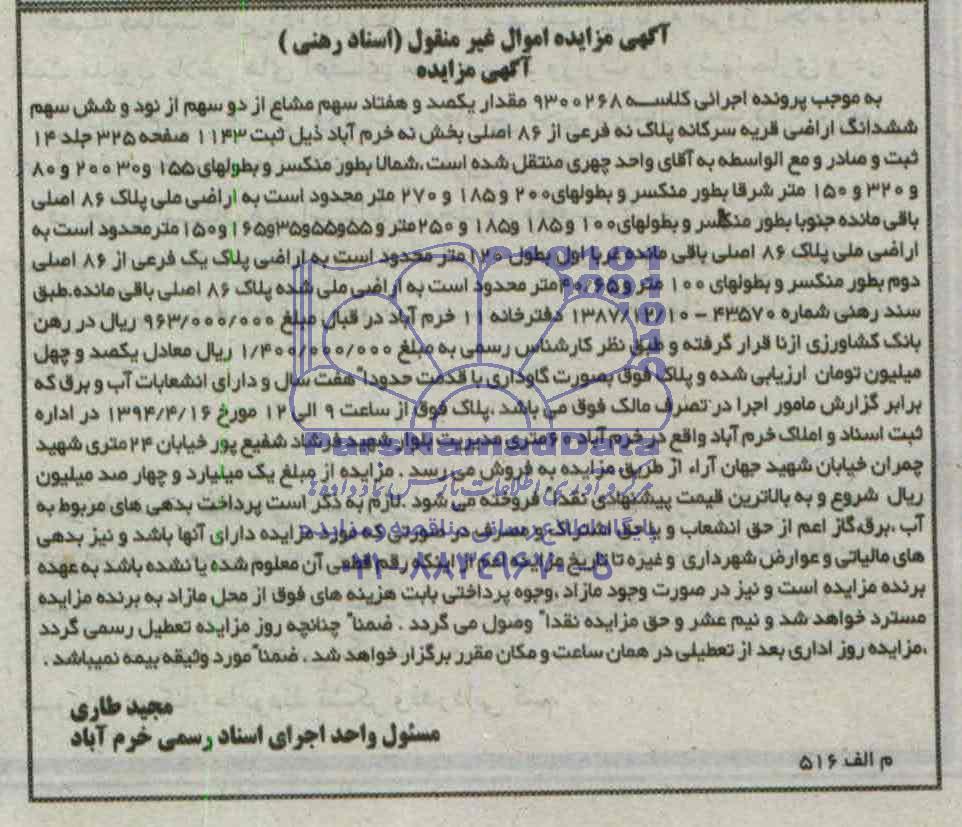 آگهی مزایده اموال غیر منقول (اسناد رهنی )
آگهی مزایده
به موجب پرونده اجرائی کلاسه ۹۳۰۰۲۶۸ مقدار یکصد و هفتاد سهم مشاع از دو سهم از نود و شش سهم
ششدانگ اراضی قریه سرکانه پلاک نه فرعی از ۸۶ اصلی بخش نه خرم آباد ذیل ثبت ۱۱۴۳ صفحه ۳۲۵ جلد ۱۴
ثبت و صادر و مع الواسطه به آقای واحد چهری منتقل شده است،شمالا بطور منکسر و بطولهای ۱۵۵ و ۳۰ و ۲۰۰ و ۸۰
و ۳۲۰ و ۱۵۰ متر شرقا بطور منکسر و بطولهای ۲۰۰ و ۱۸۵ و ۲۷۰ متر محدود است به اراضی ملی پلاک ۸۶ اصلی
باقی مانده جنوبا بطور منکسر و بطولهای ۱۰۰ و ۱۸۵ و ۱۸۵ و ۲۵۰ متر و ۵۵و۵۵و۳۵و۱۶۵ و ۱۵۰ متر محدود است به
اراضی ملی پلاک ۸۶ اصلی باقی مانده غربا اول بطول ۱۲۰ متر محدود است به اراضی پلاک یک فرعی از ۸۶ اصلی
دوم بطور منکسر و بطولهای ۱۰۰ متر و ۴۰/۶۵ متر محدود است به اراضی ملی شده پلاک ۸۶ اصلی باقی مانده.طبق
سند رهنی شماره ۴۳۵۷۰ - ۱۳۸۷/۱۲/۱۰ دفترخانه ۱۱ خرم آباد در قبال مبلغ ۹۶۳/۰۰۰/۰۰۰ ریال در رهن
بانک کشاورزی ازنا قرار گرفته و طبق نظر کارشناس رسمی به مبلغ ۱/۴۰۰/۰۰۰/۰۰۰ ریال معادل یکصد و چهل
میلیون تومان ارزیابی شده و پلاک فوق بصورت گاوداری با قدمت حدودا" هفت سال و دارای انشعابات آب و برق که
برابر گزارش مامور اجرا در تصرف مالک فوق می باشد .پلاک فوق از ساعت ۹ الی ۱۲ مورخ ۱۳۹۴/۴/۱۶ در اداره
ثبت اسناد و املاک خرم آباد واقع در خرم آباد ۶۰متری مدیریت بلوار شهید فرشاد شفیع پور خیابان ۲۴متری شهید
چمران خیابان شهید جهان آراء از طریق مزایده به فروش می رسد . مزایده از مبلغ یک میلیارد و چهار صد میلیون
ریال شروع و به بالاترین قیمت پیشنهادی نقدا" فروخته می شود .لازم به ذکر است پرداخت بدهی های مربوط به
آب ،برق،گاز اعم از حق انشعاب و یا حق اشتراک و مصرف در صورتی که مورد مزایده دارای آنها باشد و نیز بدهی
های مالیاتی و عوارض شهرداری و غیره تا تاریخ مزایده اعم از اینکه رقم قطعی آن معلوم شده یا نشده باشد به عهده
برنده مزایده است و نیز در صورت وجود مازاد ،وجوه پرداختی بابت هزینه های فوق از محل مازاد به برنده مزایده
مسترد خواهد شد و نیم عشر و حق مزایده نقدا" وصول می گردد . ضمنا" چنانچه روز مزایده تعطیل رسمی گردد
،مزایده روز اداری بعد از تعطیلی در همان ساعت و مکان مقرر برگزار خواهد شد . ضمنا" مورد وثیقه بیمه نمیباشد .
مجید طاری
مسئول واحد اجرای اسناد رسمی خرم آباد
م الف ۵۱۶
ParsNamadData
۰۲۱-۸۸۳۴۹۶۷۰-۵